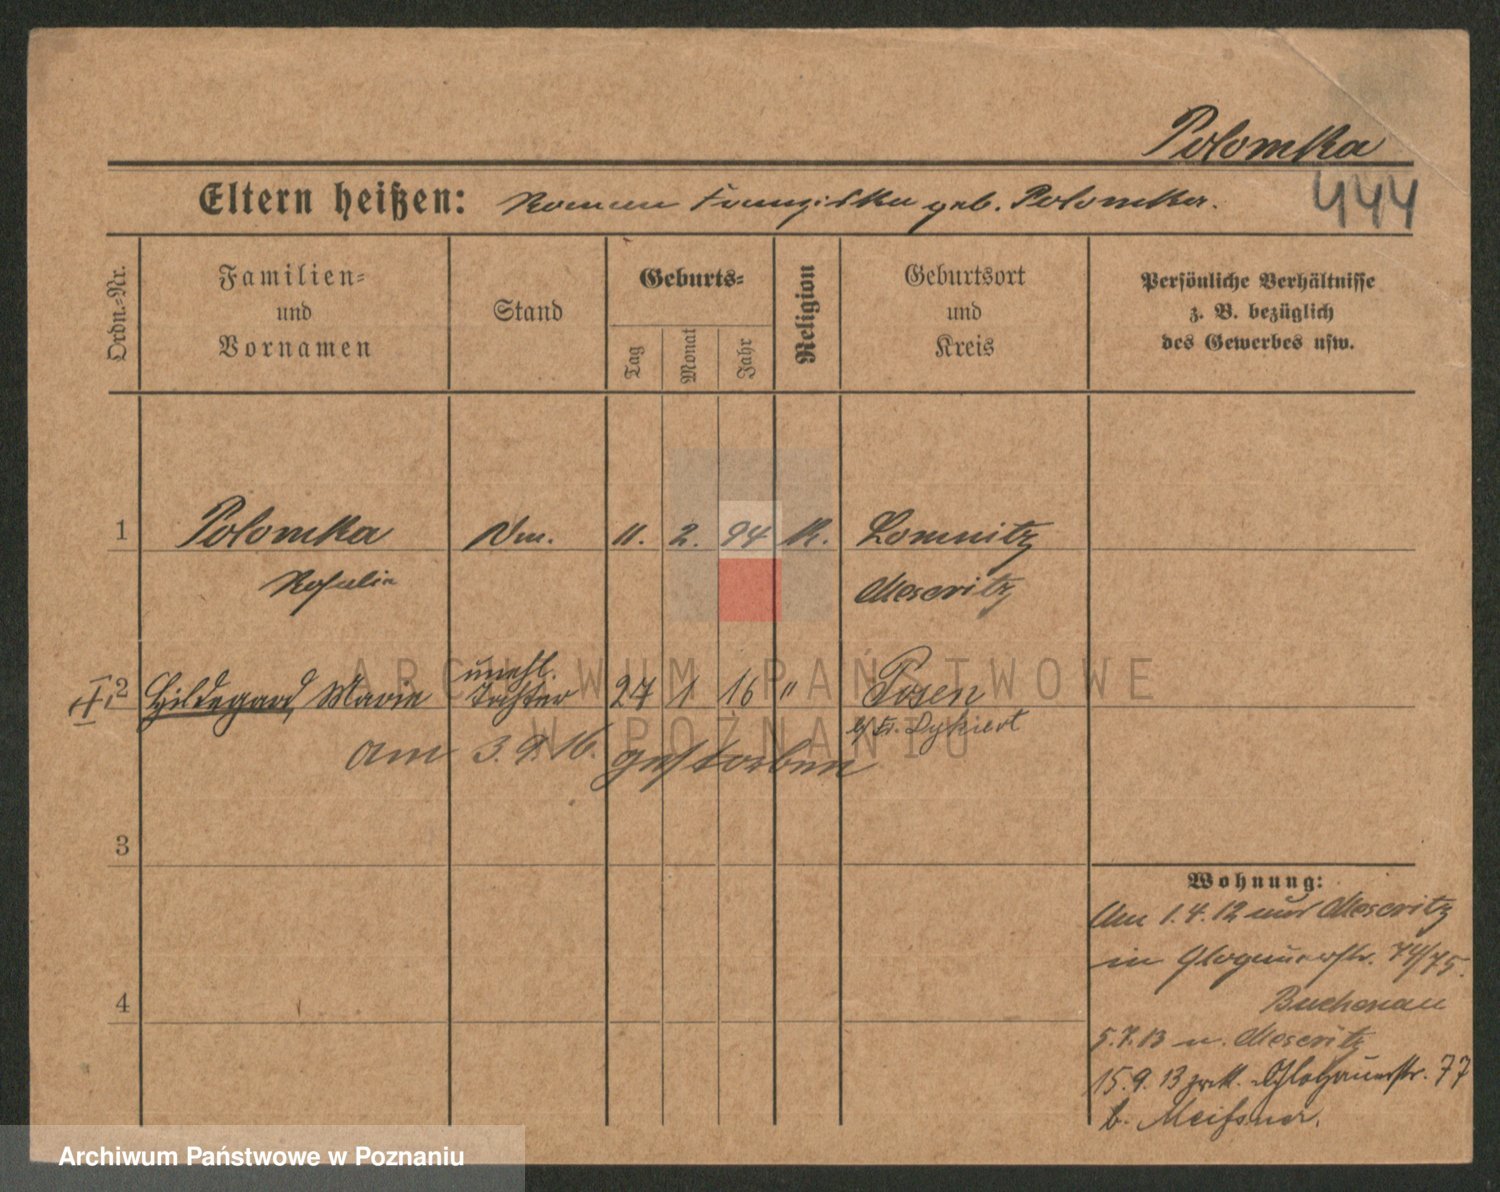 Polomka
444
Eltern heißen: Roman Franziska geb. Polomka.
Ordn.-Nr.
Familien-
und
Vornamen
Stand
Geburts-
Tag
Monat
Jahr
Religion
Geburtsort
und
Kreis
Persönliche Verhältnisse
z. B. bezüglich
des Gewerbes usw.
1 Polomka Dm. 11. 2. 94 K. Lomnitz
Rosalie Meseritz
unehl.
II. 2 Hildegard Marie Tochter 24 1 16 " Posen
am 3. 9. 16. gestorben
3
4
Wohnung:
Am 1. 4. 12 aus Meseritz
in Glogauerstr. 74/75.
Buchenau
5. 7. 13 n. Meseritz
15. 9. 13 zrck. Glogauerstr. 77
b. Meißner.
ARCHIWUM PAŃSTWOWE
W POZNANIU
Archiwum Państwowe w Poznaniu